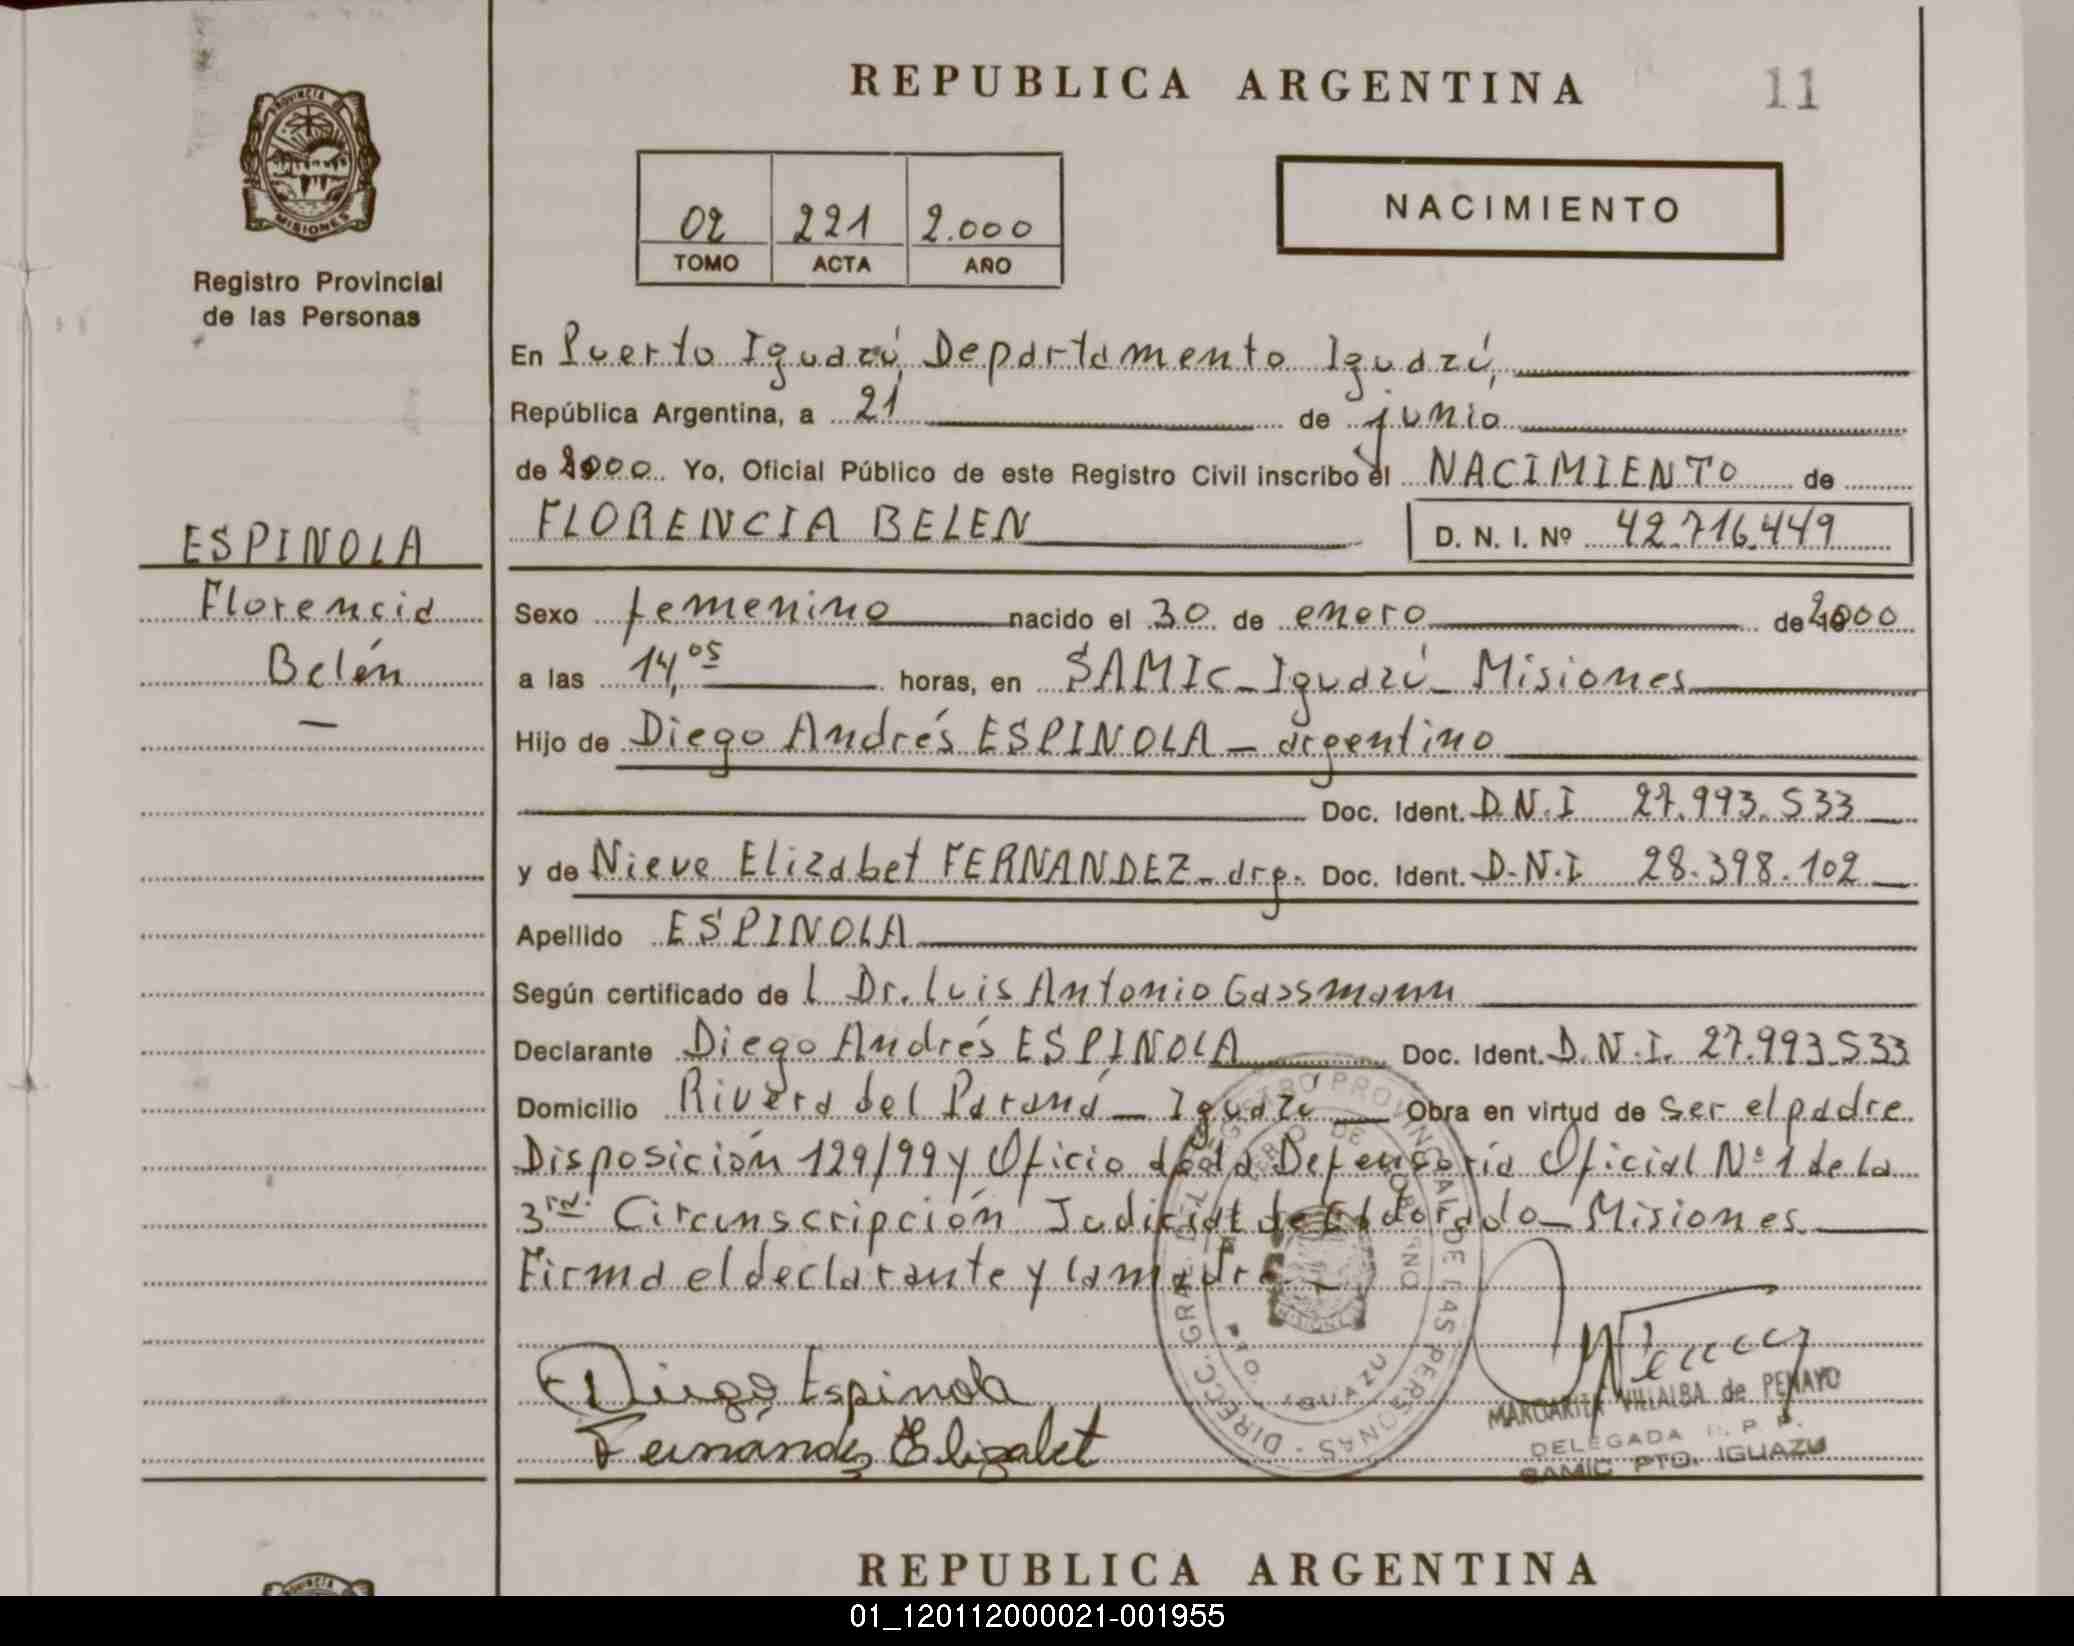 REPUBLICA ARGENTINA
11
PROVINCIA DE
MISIONES
Registro Provincial
de las Personas
02 221 2.000
TOMO ACTA AÑO
NACIMIENTO
En Puerto Iguazú, Departamento Iguazú,
República Argentina, a 21 de junio
de 2000 Yo, Oficial Público de este Registro Civil inscribo el NACIMIENTO de
FLORENCIA BELEN D. N. I. Nº 42.716.449
ESPINOLA
Florencia
Belén
Sexo femenino nacido el 30 de enero de 2000
a las 14,05 horas, en SAMIC - Iguazú - Misiones
Hijo de Diego Andrés ESPINOLA - argentino
Doc. Ident. D.N.I 27.993.533
y de Nieve Elizabet FERNANDEZ - arg. Doc. Ident. D.N.I 28.398.102
Apellido ESPINOLA
Según certificado de l Dr. Luis Antonio Gassmann
Declarante Diego Andrés ESPINOLA Doc. Ident. D.N.I. 27.993.533
Domicilio Rivera del Paraná - Iguazú Obra en virtud de ser el padre
Disposición 129/99 y Oficio de la Defensoría Oficial Nº 1 de la
3ra. Circunscripción Judicial de Eldorado - Misiones
Firma el declarante y la madre -
Diego Espinola
Fernández Elizabet
DIRECC. GRAL. DEL REGISTRO PROVINCIAL DE LAS PERSONAS
PTO. IGUAZU
MARGARITA VILLALBA de PENAYO
DELEGADA R. P. P.
SAMIC PTO. IGUAZU
REPUBLICA ARGENTINA
01_120112000021-001955